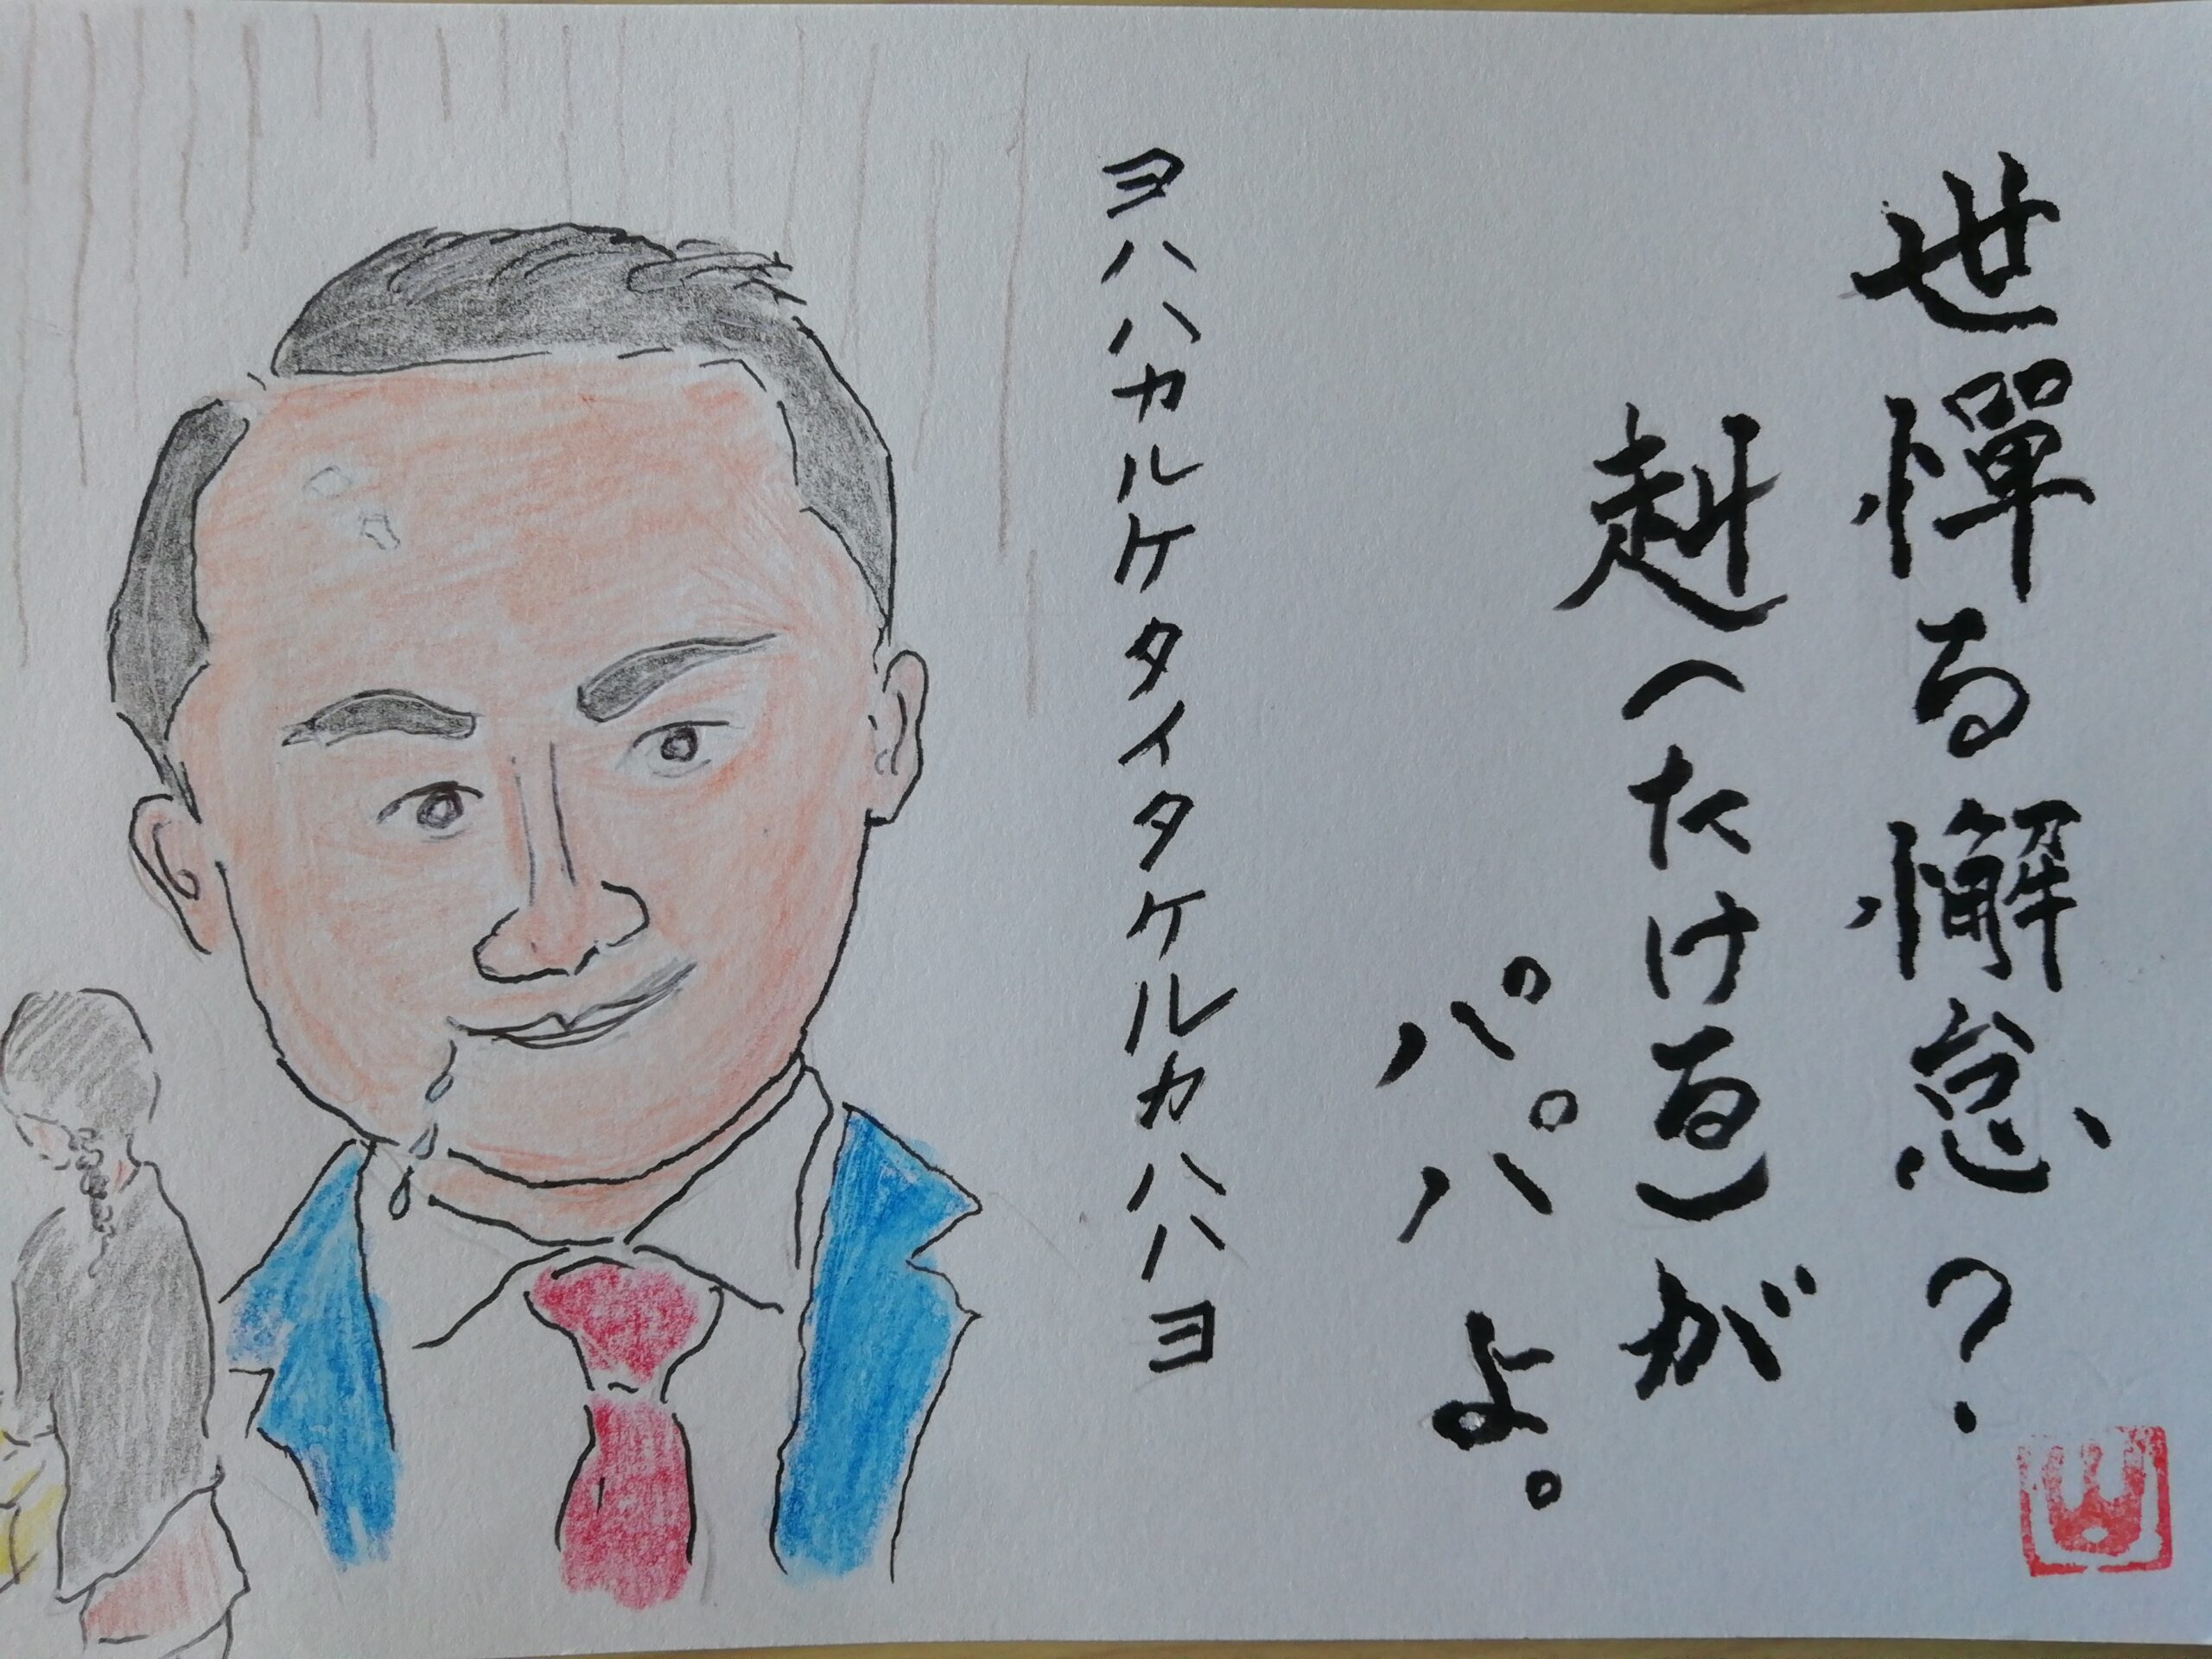 世憚る懈怠、?
赳(たける)が
パパよ。
ヨハハカルケタイタケルカハハヨ